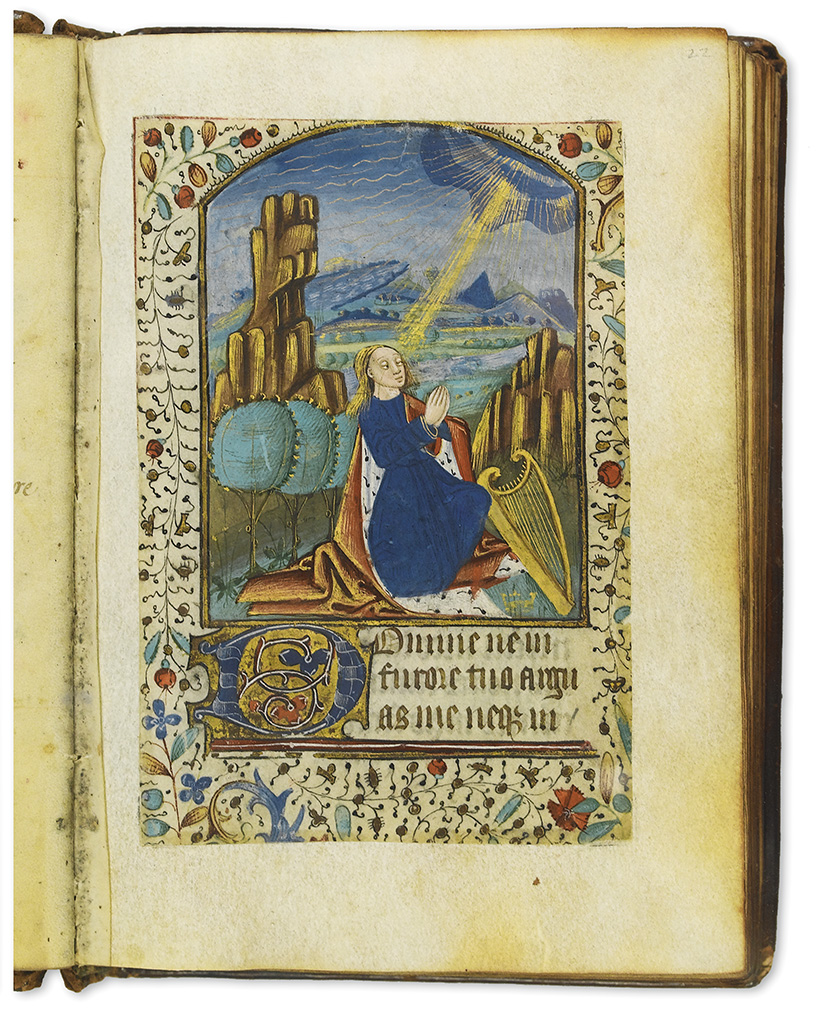 22
re
DOmine ne in
furore tuo argu
as me neqꝫ in